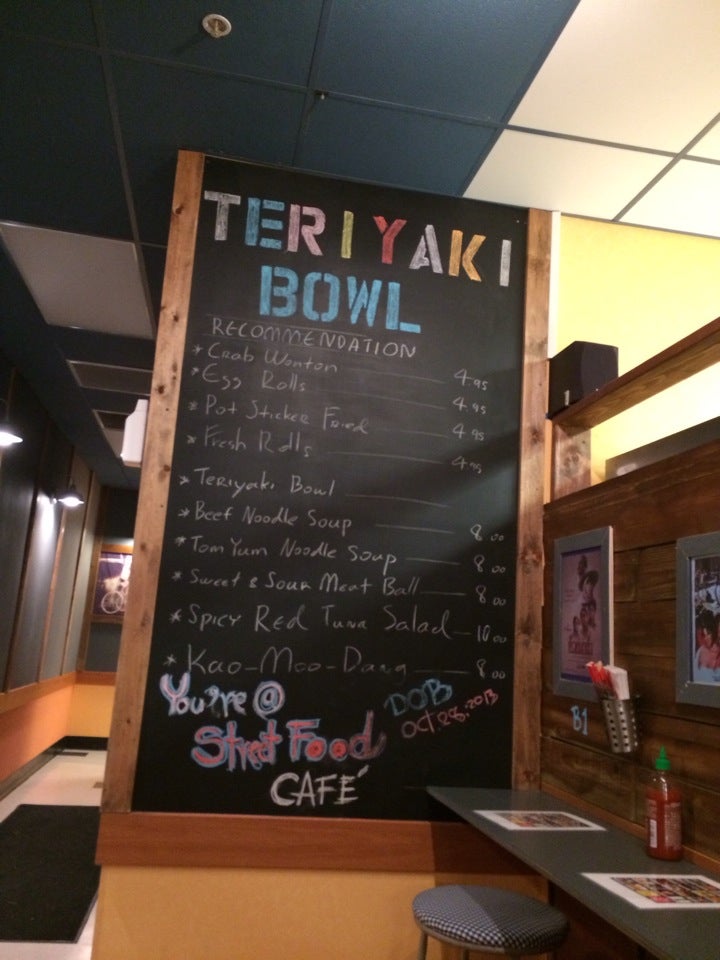 TERIYAKI
BOWL
RECOMMENDATION
* Crab Wonton 4.95
* Egg Rolls 4.95
* Pot Sticker Fried 4.95
* Fresh Rolls 4.95
* Teriyaki Bowl
* Beef Noodle Soup 8.00
* Tom Yum Noodle Soup 8.00
* Sweet & Sour Meat Ball 8.00
* Spicy Red Tuna Salad 10.00
* Kao-Moo-Dang 8.00
You're @
DOB
OCT.28.2013
Stret Food
CAFÉ
B1